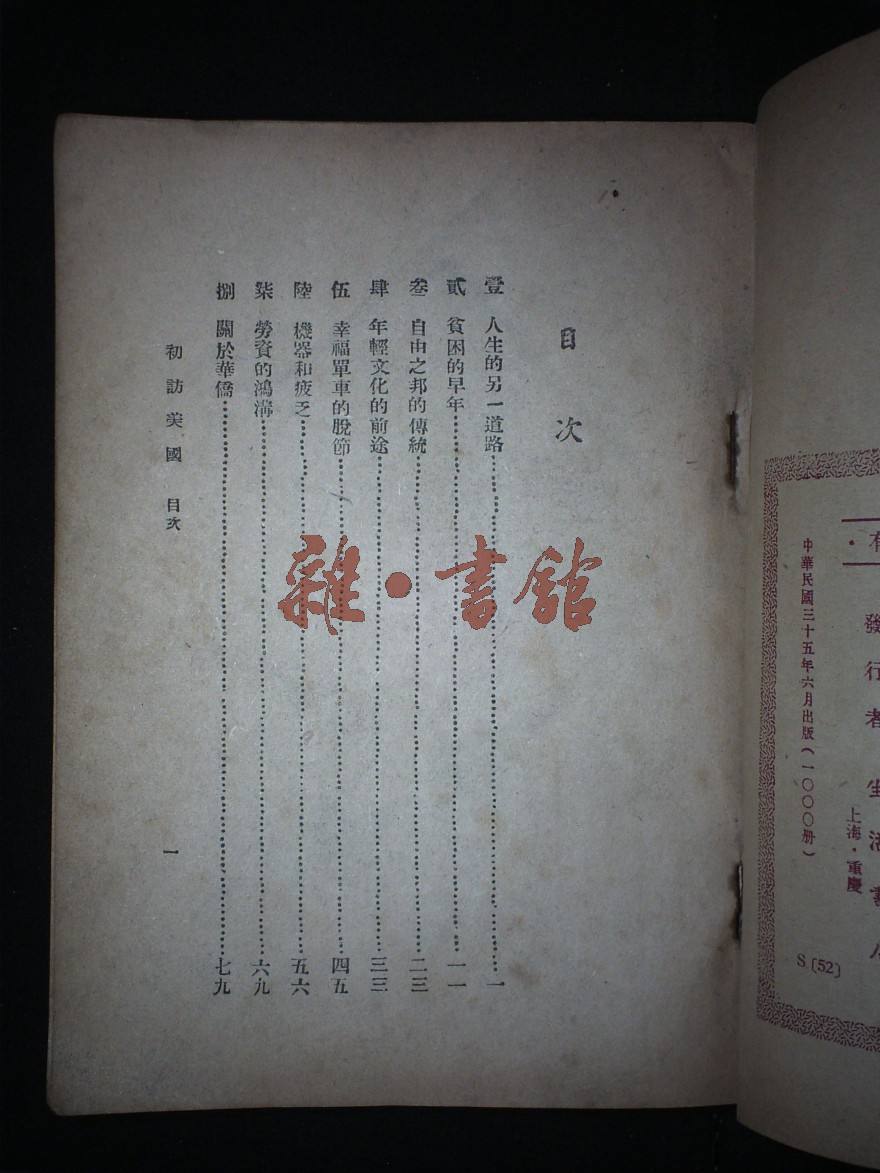 有·
發行者 生活書店
上海·重慶
中華民國三十五年六月出版(一〇〇〇册)
S〔52〕
目次
壹 人生的另一道路……一
貳 貧困的早年……一一
叁 自由之邦的傳統……二三
肆 年輕文化的前途……三三
伍 幸福單車的脫節……四五
陸 機器和疲乏……五六
柒 勞資的鴻溝……六九
捌 關於華僑……七九
初訪美國 目次
一
雜·書館